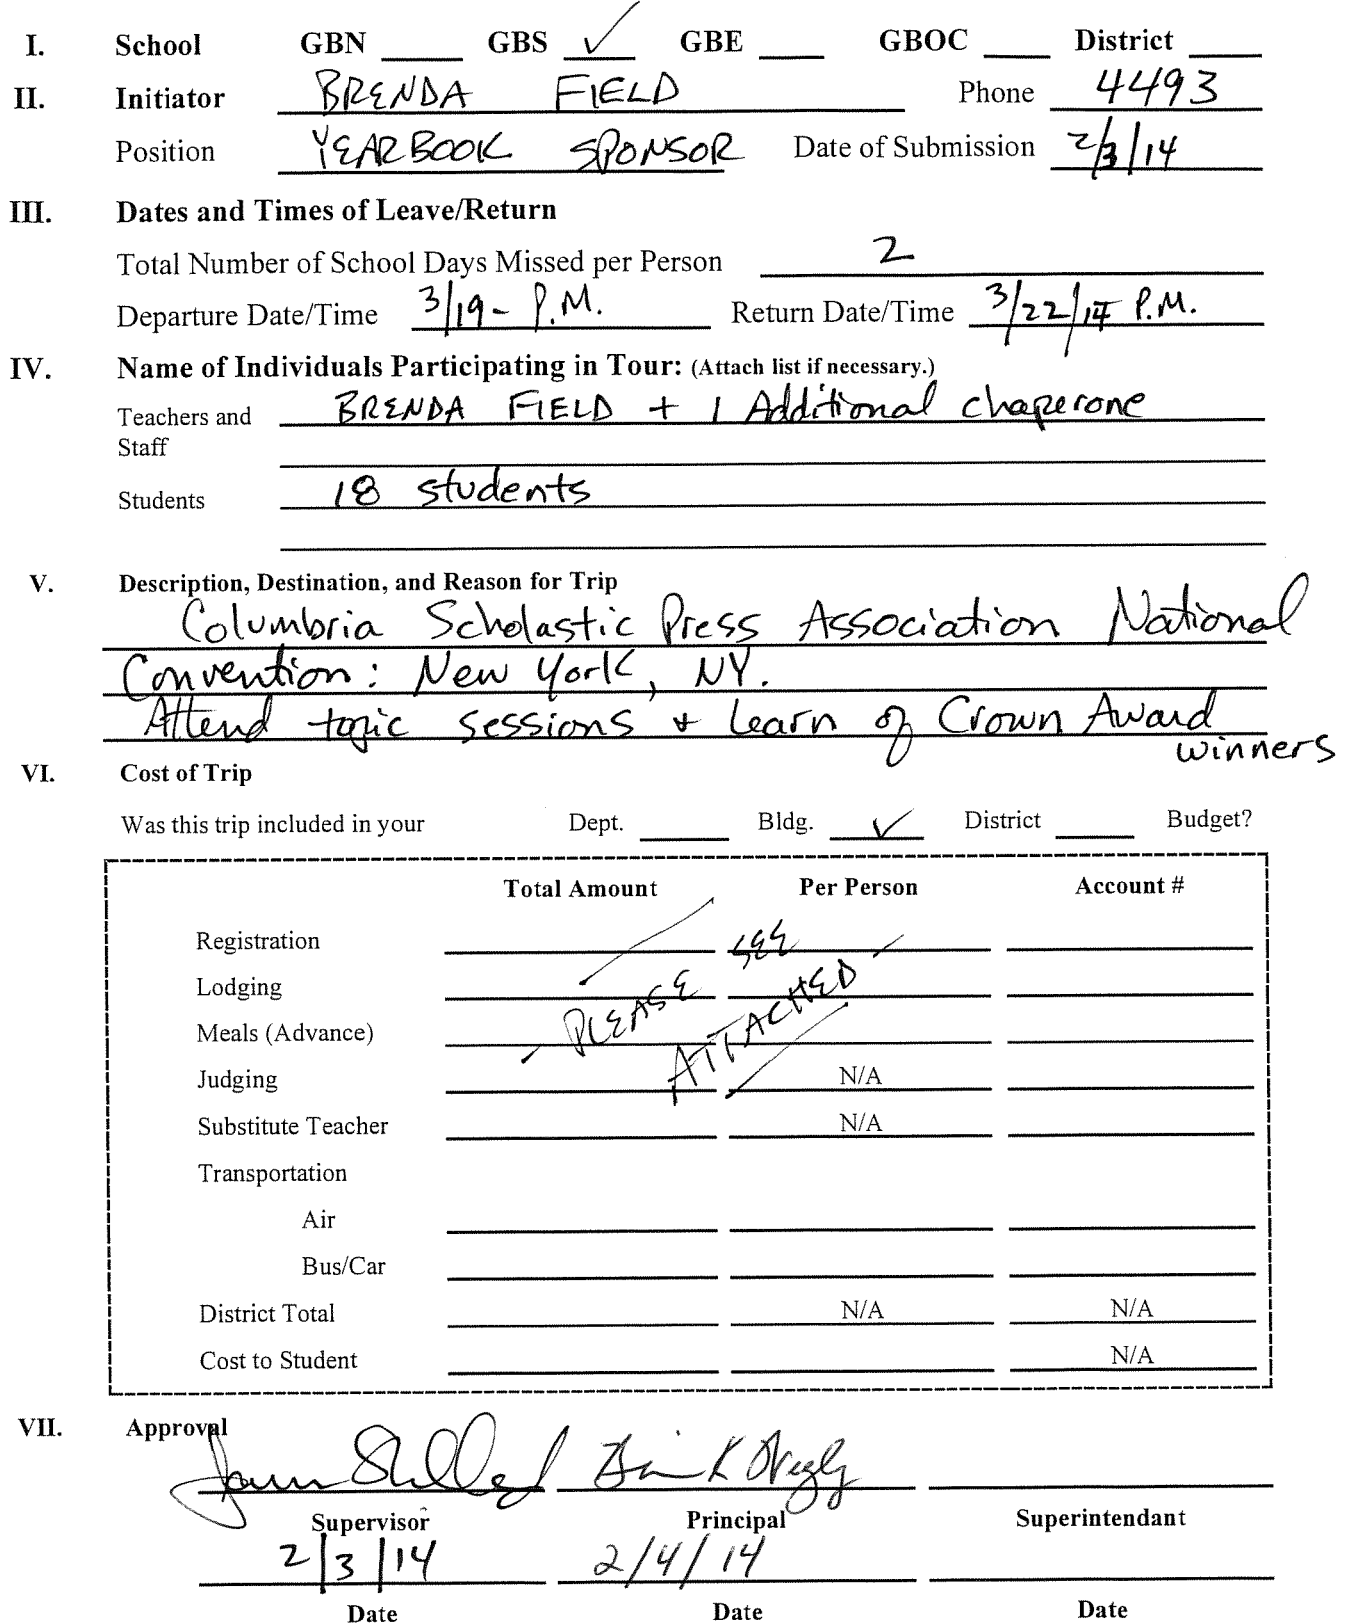 I. School GBN ____ GBS ✓ GBE ____ GBOC ____ District ____
II. Initiator BRENDA FIELD Phone 4493
Position YEARBOOK SPONSOR Date of Submission 2/3/14
III. Dates and Times of Leave/Return
Total Number of School Days Missed per Person 2
Departure Date/Time 3/19 - P.M. Return Date/Time 3/22/14 P.M.
IV. Name of Individuals Participating in Tour: (Attach list if necessary.)
Teachers and BRENDA FIELD + 1 Additional chaperone
Staff
Students 18 students
V. Description, Destination, and Reason for Trip
Columbria Scholastic Press Association National
Convention: New York, NY.
Attend topic sessions + Learn of Crown Award
winners
VI. Cost of Trip
Was this trip included in your Dept. ____ Bldg. ✓ District ____ Budget?
Total Amount Per Person Account #
Registration
Lodging
Meals (Advance)
PLEASE SEE
ATTACHED
Judging N/A
Substitute Teacher N/A
Transportation
Air
Bus/Car
District Total N/A N/A
Cost to Student N/A
VII. Approval
Supervisor Principal Superintendant
2/3/14 2/4/14
Date Date Date